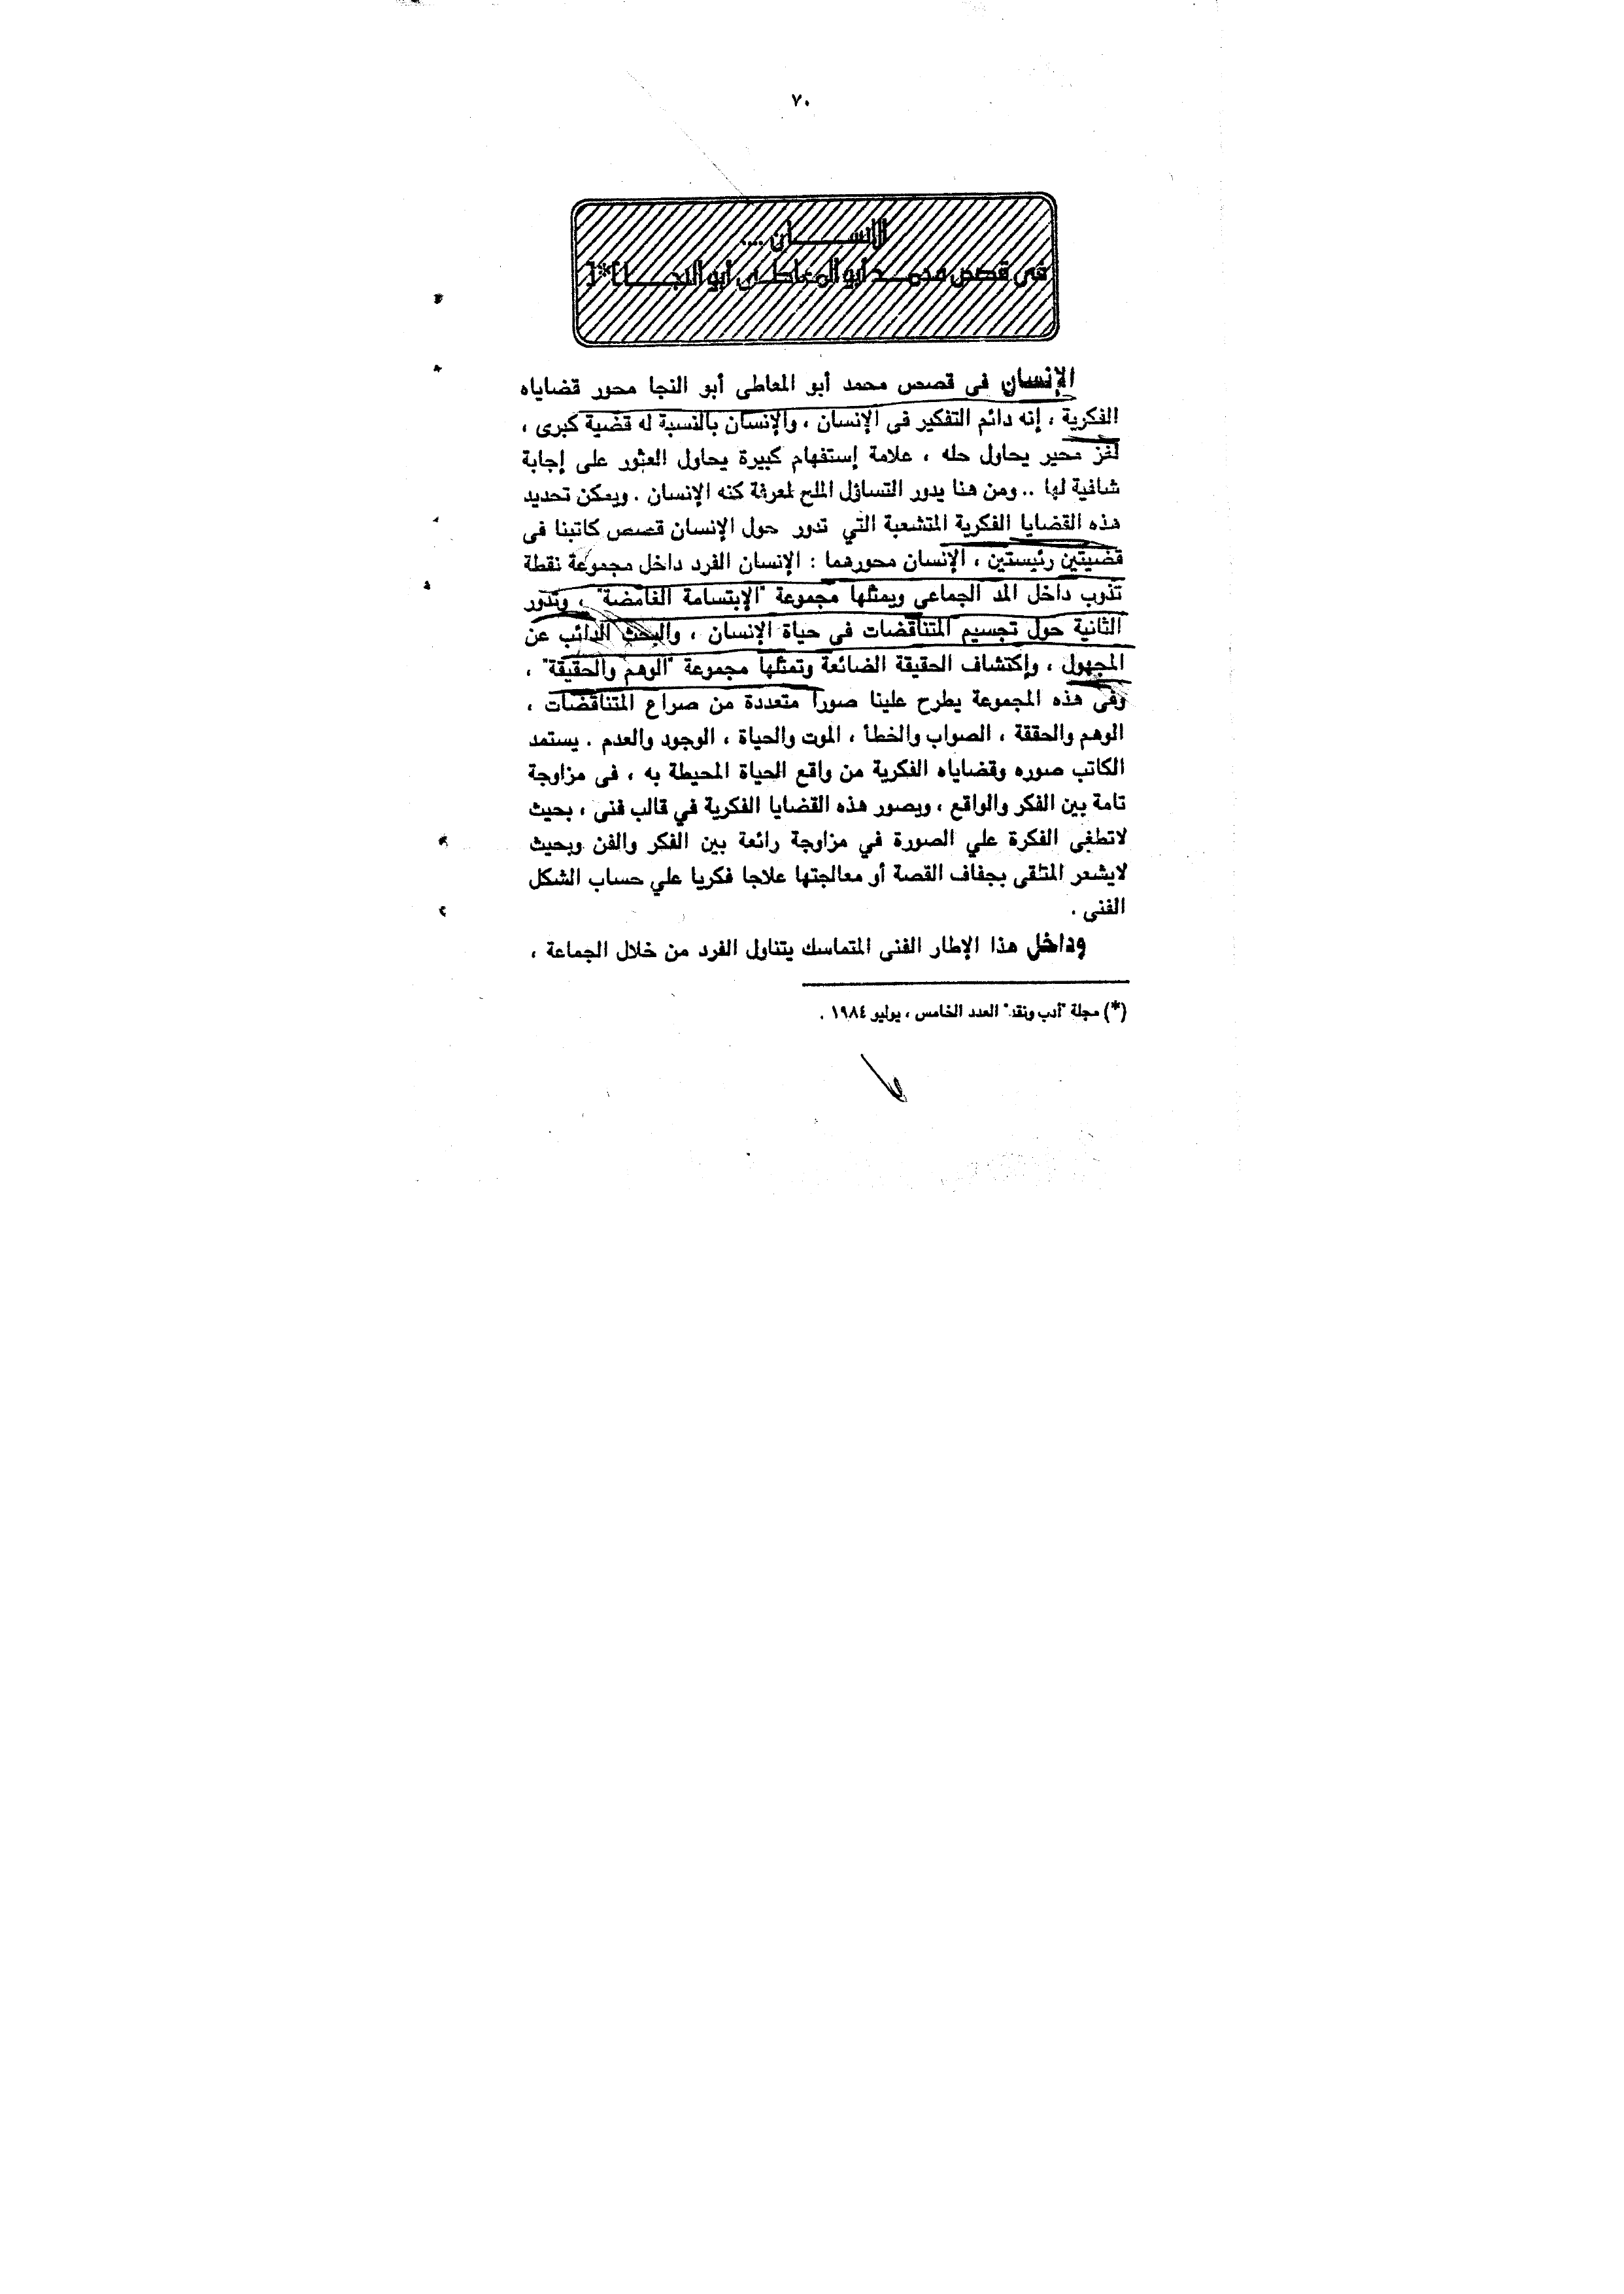 ٧٠
الإنســـــان ...
فى قصص محمـــد أبو المعاطــى أبو النجـــــا (*)
الإنسان فى قصص محمد أبو المعاطى أبو النجا محور قضاياه
الفكرية ، إنه دائم التفكير فى الإنسان ، والإنسان بالنسبة له قضية كبرى ،
لغز محير يحاول حله ، علامة إستفهام كبيرة يحاول العثور على إجابة
شافية لها .. ومن هنا يدور التساؤل الملح لمعرفة كنه الإنسان . ويمكن تحديد
هذه القضايا الفكرية المتشعبة التي تدور حول الإنسان قصص كاتبنا فى
قضيتين رئيستين ، الإنسان محورهما : الإنسان الفرد داخل مجموعة نقطة
تذوب داخل المد الجماعى ويمثلها مجموعة "الإبتسامة الغامضة" ، وتدور
الثانية حول تجسيم المتناقضات فى حياة الإنسان ، والبحث الدائب عن
المجهول ، وإكتشاف الحقيقة الضائعة وتمثلها مجموعة "الوهم والحقيقة" ،
وفى هذه المجموعة يطرح علينا صوراً متعددة من صراع المتناقضات ،
الوهم والحققة ، الصواب والخطأ ، الموت والحياة ، الوجود والعدم . يستمد
الكاتب صوره وقضاياه الفكرية من واقع الحياة المحيطة به ، فى مزاوجة
تامة بين الفكر والواقع ، ويصور هذه القضايا الفكرية في قالب فنى ، بحيث
لاتطغى الفكرة علي الصورة في مزاوجة رائعة بين الفكر والفن وبحيث
لايشعر المتلقى بجفاف القصة أو معالجتها علاجا فكريا علي حساب الشكل
الفنى .
وداخل هذا الإطار الفنى المتماسك يتناول الفرد من خلال الجماعة ،
(*) مجلة "أدب ونقد" العدد الخامس ، يوليو ١٩٨٤ .